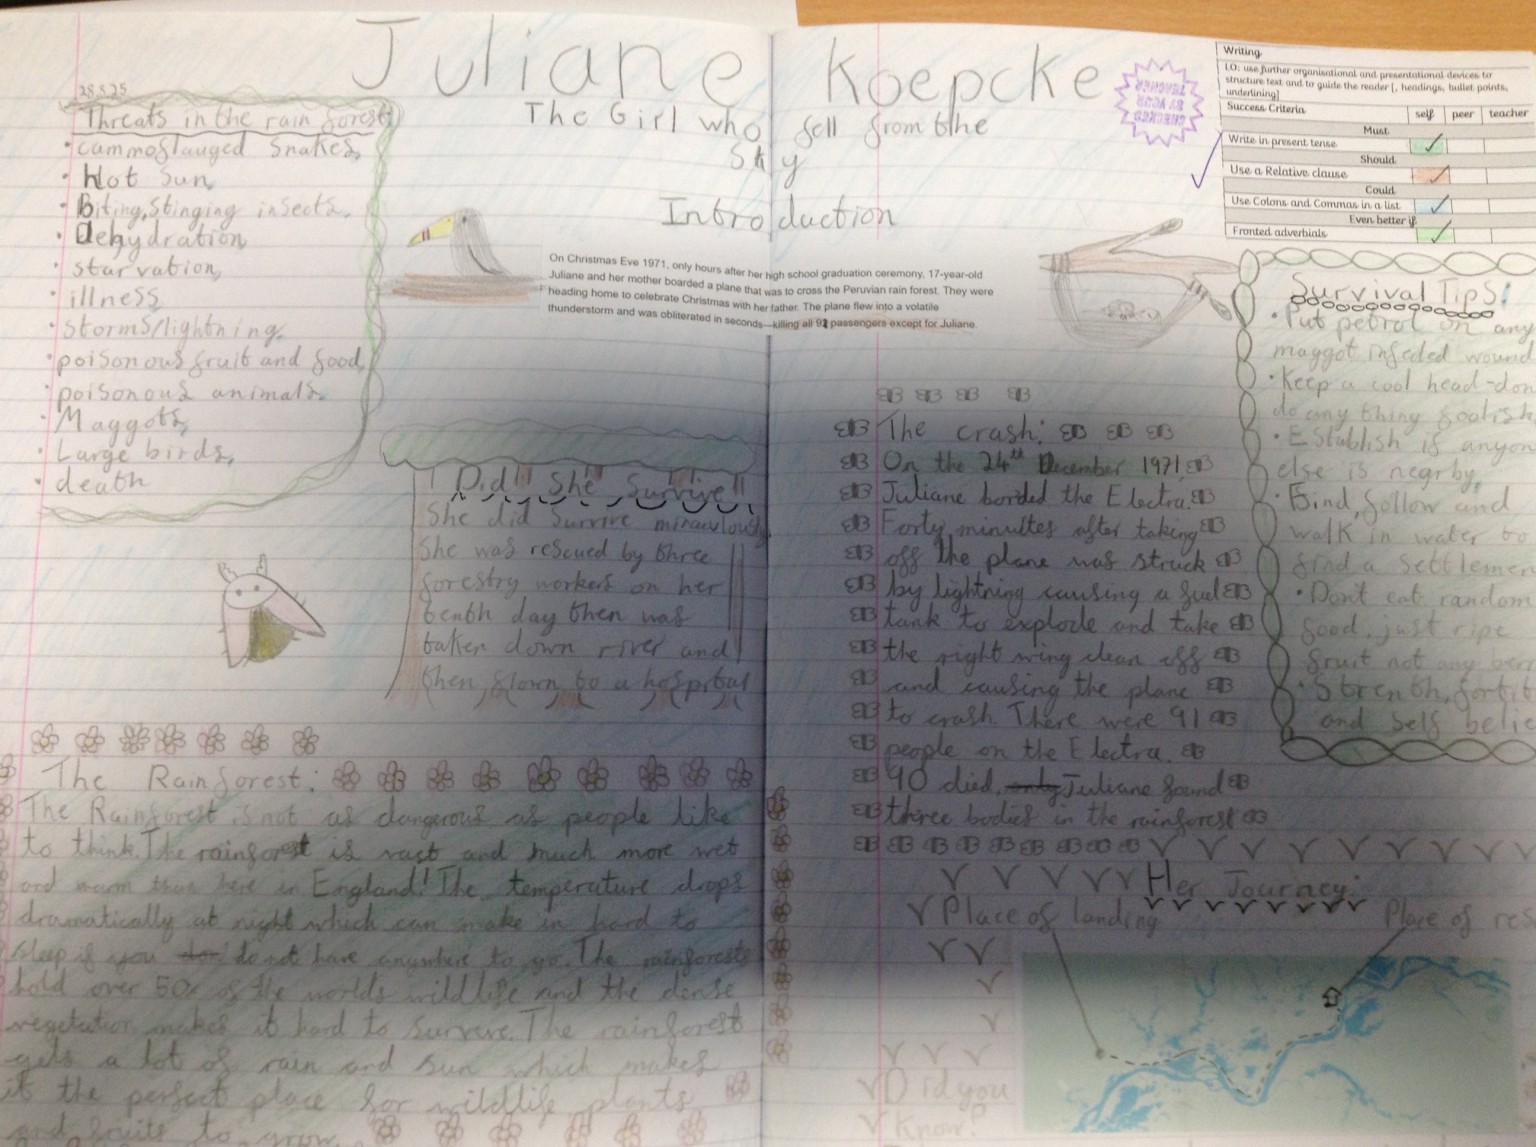 Juliane Koepcke
The Girl who fell from the
Sky
28.3.25
Threats in the rain forest
• cammoflauged snakes,
• Hot Sun,
• Biting, stinging insects,
• Dehydration
• starvation,
• illness
• storms/lightning,
• poisonous fruit and food,
• poisonous animals,
• Maggots,
• Large birds,
• death
Introduction
On Christmas Eve 1971, only hours after her high school graduation ceremony, 17-year-old
Juliane and her mother boarded a plane that was to cross the Peruvian rain forest. They were
heading home to celebrate Christmas with her father. The plane flew into a volatile
thunderstorm and was obliterated in seconds—killing all 92 passengers except for Juliane.
CHECKED
BY YOUR
TEACHER
Writing
LO: use further organisational and presentational devices to
structure text and to guide the reader [, headings, bullet points,
underlining]
Success Criteria self peer teacher
Must
Write in present tense
Should
Use a Relative clause
Could
Use Colons and Commas in a list
Even better if
Fronted adverbials
Did She Survive
She did survive miraculously
She was rescued by three
forestry workers on her
tenth day then was
taken down river and
then flown to a hospital
The crash:
On the 24th December 1971,
Juliane borded the Electra.
Forty minuttes after taking
off the plane was struck
by lightning causing a fuel
tank to explode and take
the right wing clean off
and causing the plane
to crash. There were 91
people on the Electra.
90 died, only Juliane found
three bodies in the rainforest
Survival Tips!
• Put petrol on any
maggot infeded wound
• Keep a cool head-don
do any thing foolish
• Establish if anyon
else is nearby,
• Find, follow and
walk in water to
find a settlemen
• Don't eat random
food, just ripe
fruit not any berr
• Strenth, fortit
and self belie
The Rainforest:
The Rainforest is not as dangerous as people like
to think. The rainforest is vast and much more wet
and warm than here in England! The temperature drops
dramatically at night which can make in hard to
sleep if you do not have anywhere to go. The rainforests
hold over 50% of the worlds wildlife and the dense
vegetation makes it hard to survive. The rainforest
gets a lot of rain and sun which makes
it the perfect place for wildlife plants
and fruits to grow.
Her Journey:
Place of landing
Place of res
Did you
Know?